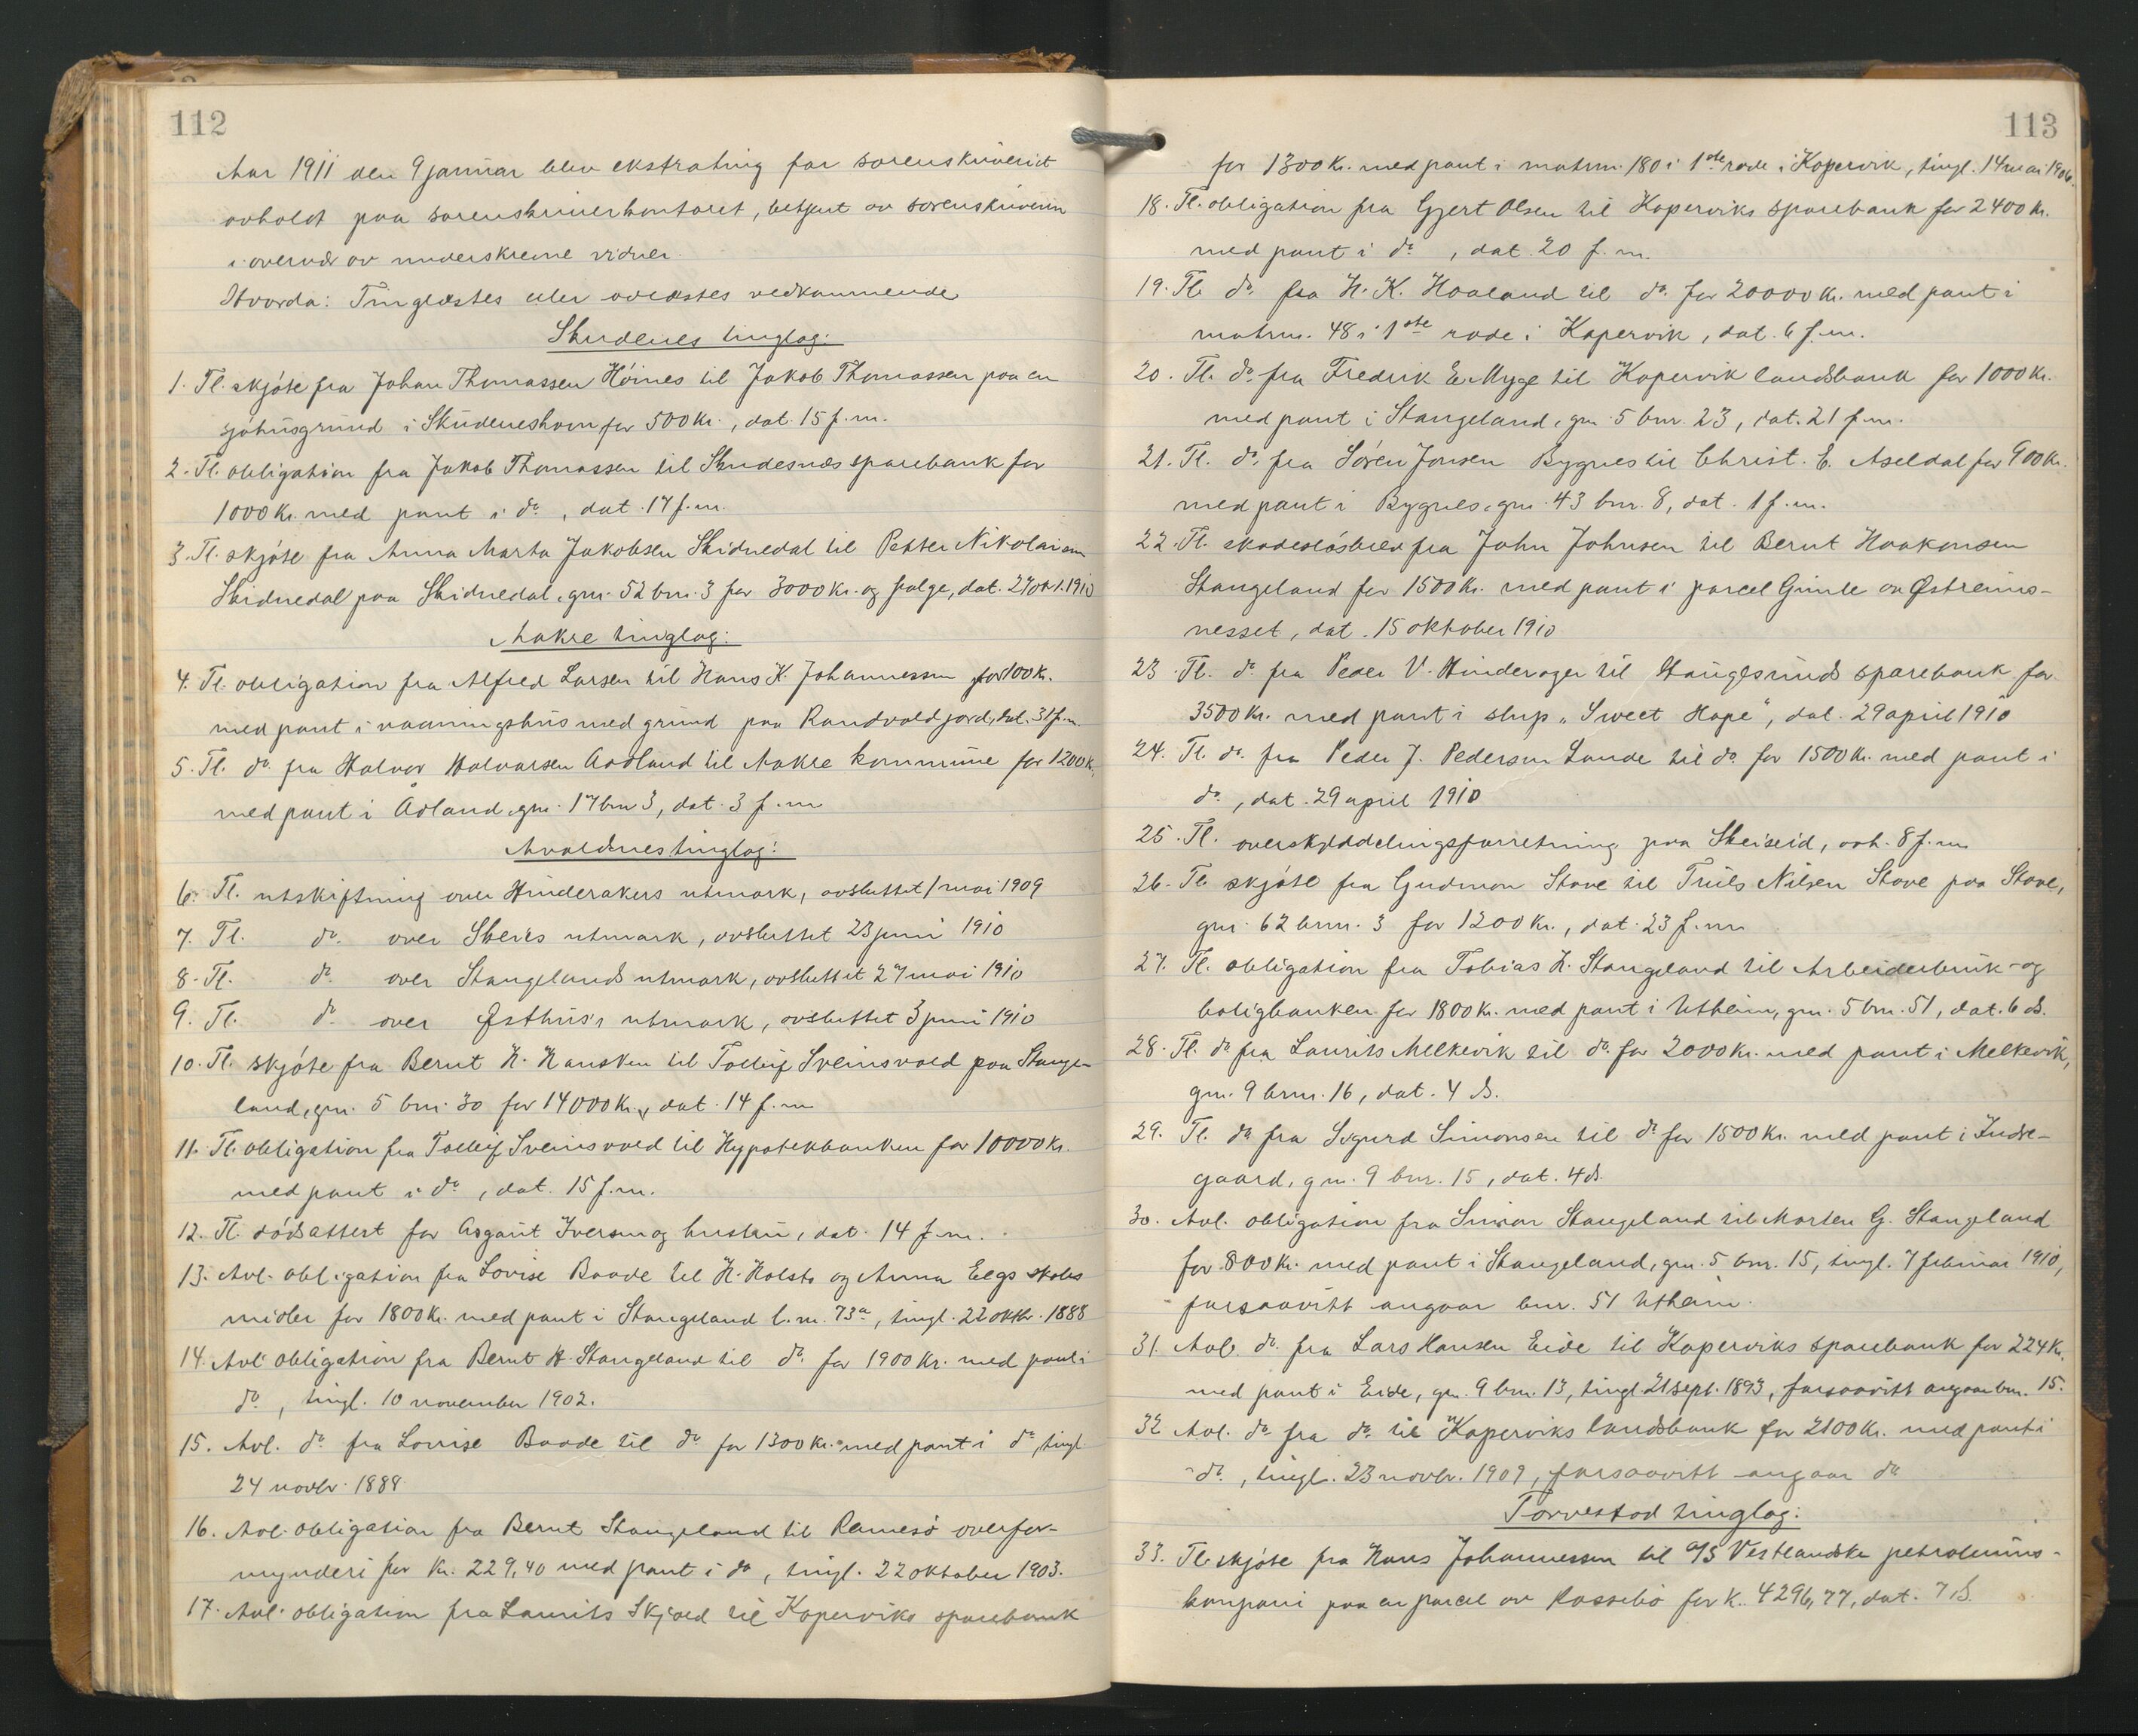 112
Aar 1911 den 9 januar blev ekstrating for sorenskriveriet
avholdt paa sorenskriverkontoret, betjent av sorenskriveren
i overvær av underskrevne vidner.
Hvorda: Tinglæstes eller avlæstes vedkommende
Skudenes tinglag:
1. Tl. skjøte fra Johan Thomassen Høines til Jakob Thomassen paa en
sjøhusgrund i Skudeneshavn for 500 Kr., dat. 15 f.m.
2. Tl. obligation fra Jakob Thomassen til Skudesnæs sparebank for
1000 Kr. med pant i do., dat. 17 f.m.
3. Tl. skjøte fra Anna Marta Jakobsen Skidnedal til Petter Nikolaisen
Skidnedal paa Skidnedal, gnr. 52 bnr. 3 for 3000 Kr. og følge, dat. 27 okt. 1910
Aakre tinglag:
4. Tl. obligation fra Alfred Larsen til Hans K. Johannessen for 100 Kr.
med pant i vaaningshus med grund paa Randvold jord, dat. 31 f.m.
5. Tl. do. fra Halvor Halvorsen Aadland til Aakre kommune for 1200 K.
med pant i Ådland, gnr. 17 bnr 3, dat. 3 f.m
Avaldsnes tinglag:
6. Tl. utskiftning over Hinderakers utmark, avsluttet 1 mai 1909
7. Tl. do. over Skeies utmark, avsluttet 23 juni 1910
8. Tl. do. over Stangelands utmark, avsluttet 27 mai 1910
9. Tl. do. over Østhus's utmark, avsluttet 3 juni 1910
10. Tl. skjøte fra Bernt H. Hansken til Tolleif Sveinsvold paa Stange-
land, gnr. 5 bnr. 30 for 14000 Kr., dat. 14 f.m
11. Tl. obligation fra Tolleif Sveinsvold til Hypotekbanken for 10000 Kr.
med pant i do., dat. 15 f.m.
12. Tl. dødsattest for Asgaut Iversen og hustru, dat. 14 f.m.
13. Avl. obligation fra Lovise Baade til H. Holsts og Anna Eegs skoles
midler for 1800 Kr. med pant i Stangeland l.nr. 73a, tingl. 22 oktbr. 1888
14. Avl. obligation fra Bernt H. Stangeland til do. for 1900 Kr. med pant i
do., tingl. 10 november 1902.
15. Avl. do. fra Lovise Baade til do. for 1300 Kr. med pant i do, tingl.
24 novbr. 1888
16. Avl. obligation fra Bernt Stangeland til Rennesø overfor-
mynderi for Kr. 229,40 med pant i do, tingl. 22 oktober 1903.
17. Avl. obligation fra Laurits Skjold til Koperviks sparebank
113
for 1300 Kr. med pant i matrnr. 180 i 1ste rode i Kopervik, tingl. 14 mai 1906.
18. Tl. obligation fra Gjert Olsen til Koperviks sparebank for 2400 Kr.
med pant i do, dat. 20 f.m.
19. Tl. do. fra H. K. Haaland til do. for 20000 Kr. med pant i
matrnr. 48 i 1ste rode i Kopervik, dat. 6 f.m.
20. Tl. do. fra Fredrik E. Myge til Kopervik landsbank for 1000 Kr.
med pant i Stangeland, gnr 5 bnr. 23, dat. 21 f.m.
21. Tl. do. fra Søren Jonsen Bygnes til Christ. E. Aseldal for 900 Kr.
med pant i Bygnes, gnr. 43 bnr. 8, dat. 1 f.m.
22. Tl. skadesløsbrev fra John Johnsen til Bernt Haakonsen
Stangeland for 1500 Kr. med pant i parcel Gimle av Østreims-
nesset, dat. 15 oktober 1910
23. Tl. do. fra Peder V. Hinderager til Haugesunds sparebank for
3500 Kr. med pant i slup "Sweet Hope", dat. 29 april 1910
24. Tl. do. fra Peder J. Pedersen Lande til do. for 1500 Kr. med pant i
do., dat. 29 april 1910
25. Tl. overskylddelingsforretning paa Skeiseid, avh. 8 f.m
26. Tl. skjøte fra Gudmon Stave til Truls Nilsen Stave paa Stave,
gnr. 62 bnr. 3 for 1200 Kr., dat. 23 f.m
27. Tl. obligation fra Tobias H. Stangeland til Arbeiderbruk- og
boligbanken for 1800 Kr. med pant i Utheim, gnr. 5 bnr. 51, dat. 6 ds.
28. Tl. do. fra Laurits Melkevik til do. for 2000 Kr. med pant i Melkevik,
gnr. 9 bnr. 16, dat. 4 ds.
29. Tl. do. fra Sigurd Simonsen til do for 1500 Kr. med pant i Indre-
gaard, gnr. 9 bnr. 15, dat. 4 ds.
30. Avl. obligation fra Simon Stangeland til Morten G. Stangeland
for 800 Kr. med pant i Stangeland, gnr. 5 bnr. 15, tingl. 7 februar 1910,
forsaavitt angaar bnr. 51 Utheim.
31. Avl. do. fra Lars Hansen Eide til Koperviks sparebank for 224 Kr.
med pant i Eide, gnr. 9 bnr. 13, tingl. 21 sept. 1893, forsaavitt angaar bnr. 15.
32 Avl. do. fra do. til Koperviks landsbank for 2100 Kr. med pant i
do., tingl. 23 novbr. 1909, forsaavitt angaar do
Torvestad tinglag:
33. Tl. skjøte fra Hans Johannessen til A/S Vestlandske petroleums-
kompani paa en parcel av Rossebø for K. 4296,77, dat. 7 ds.